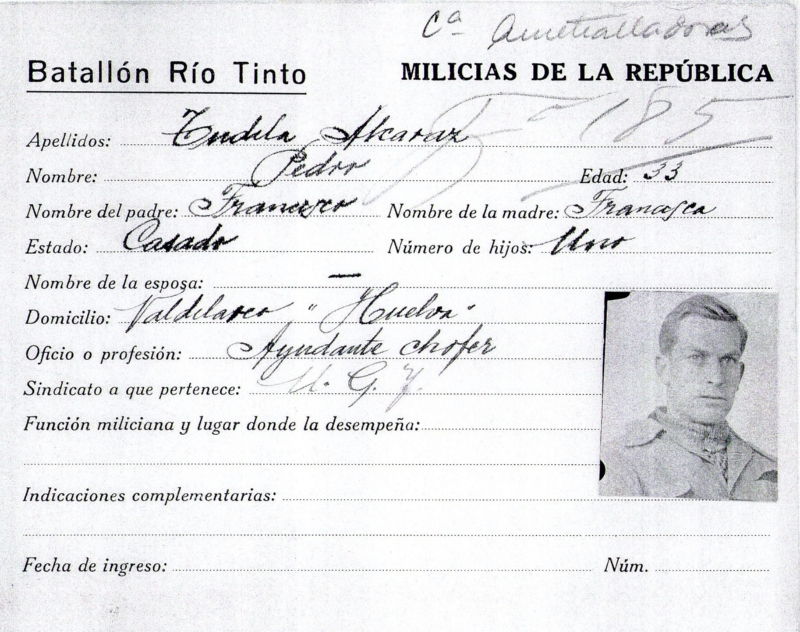 Cª Ametralladoras
Batallón Río Tinto
MILICIAS DE LA REPÚBLICA
185
Apellidos: Tudela Alcaraz
Nombre: Pedro Edad: 33
Nombre del padre: Francisco Nombre de la madre: Francisca
Estado: Casado Número de hijos: Uno
Nombre de la esposa: —
Domicilio: Valdelarco "Huelva"
Oficio o profesión: Ayudante chofer
Sindicato a que pertenece: U. G. T.
Función miliciana y lugar donde la desempeña:
Indicaciones complementarias:
Fecha de ingreso: Núm.